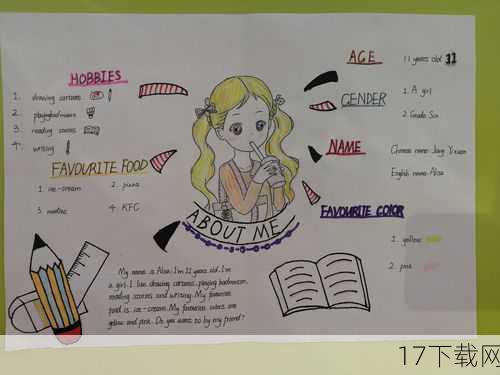 HOBBIES
1. drawing cartoons
2. playing badminton
3. reading stories
4. writing
FAVOURITE FOOD
1. ice-cream
2. pizza
3. noodles
4. KFC
ABOUT ME
AGE
11 years old 11
GENDER
1. A girl
2. Grade Six
NAME
Chinese name:
English name: Alisa
FAVOURITE COLOR
1. yellow
2. pink
My name is Alisa. I'm 11 years old. I'm
a girl. I like drawing cartoons, playing badminton,
reading stories and writing. My favourite
food is ice-cream. My favourite colors are
yellow and pink. Do you want to be my friend?
17下载网